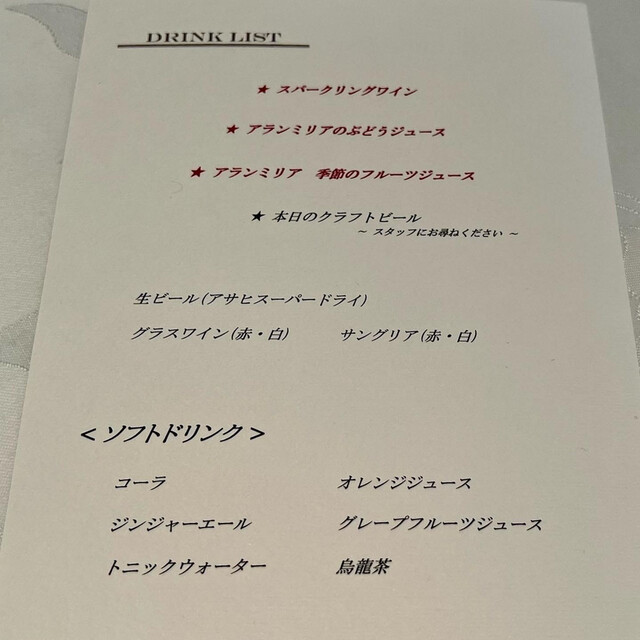 DRINK LIST
★ スパークリングワイン
★ アランミリアのぶどうジュース
★ アランミリア 季節のフルーツジュース
★ 本日のクラフトビール
～ スタッフにお尋ねください ～
生ビール(アサヒスーパードライ)
グラスワイン(赤・白) サングリア(赤・白)
<ソフトドリンク>
コーラ オレンジジュース
ジンジャーエール グレープフルーツジュース
トニックウォーター 烏龍茶